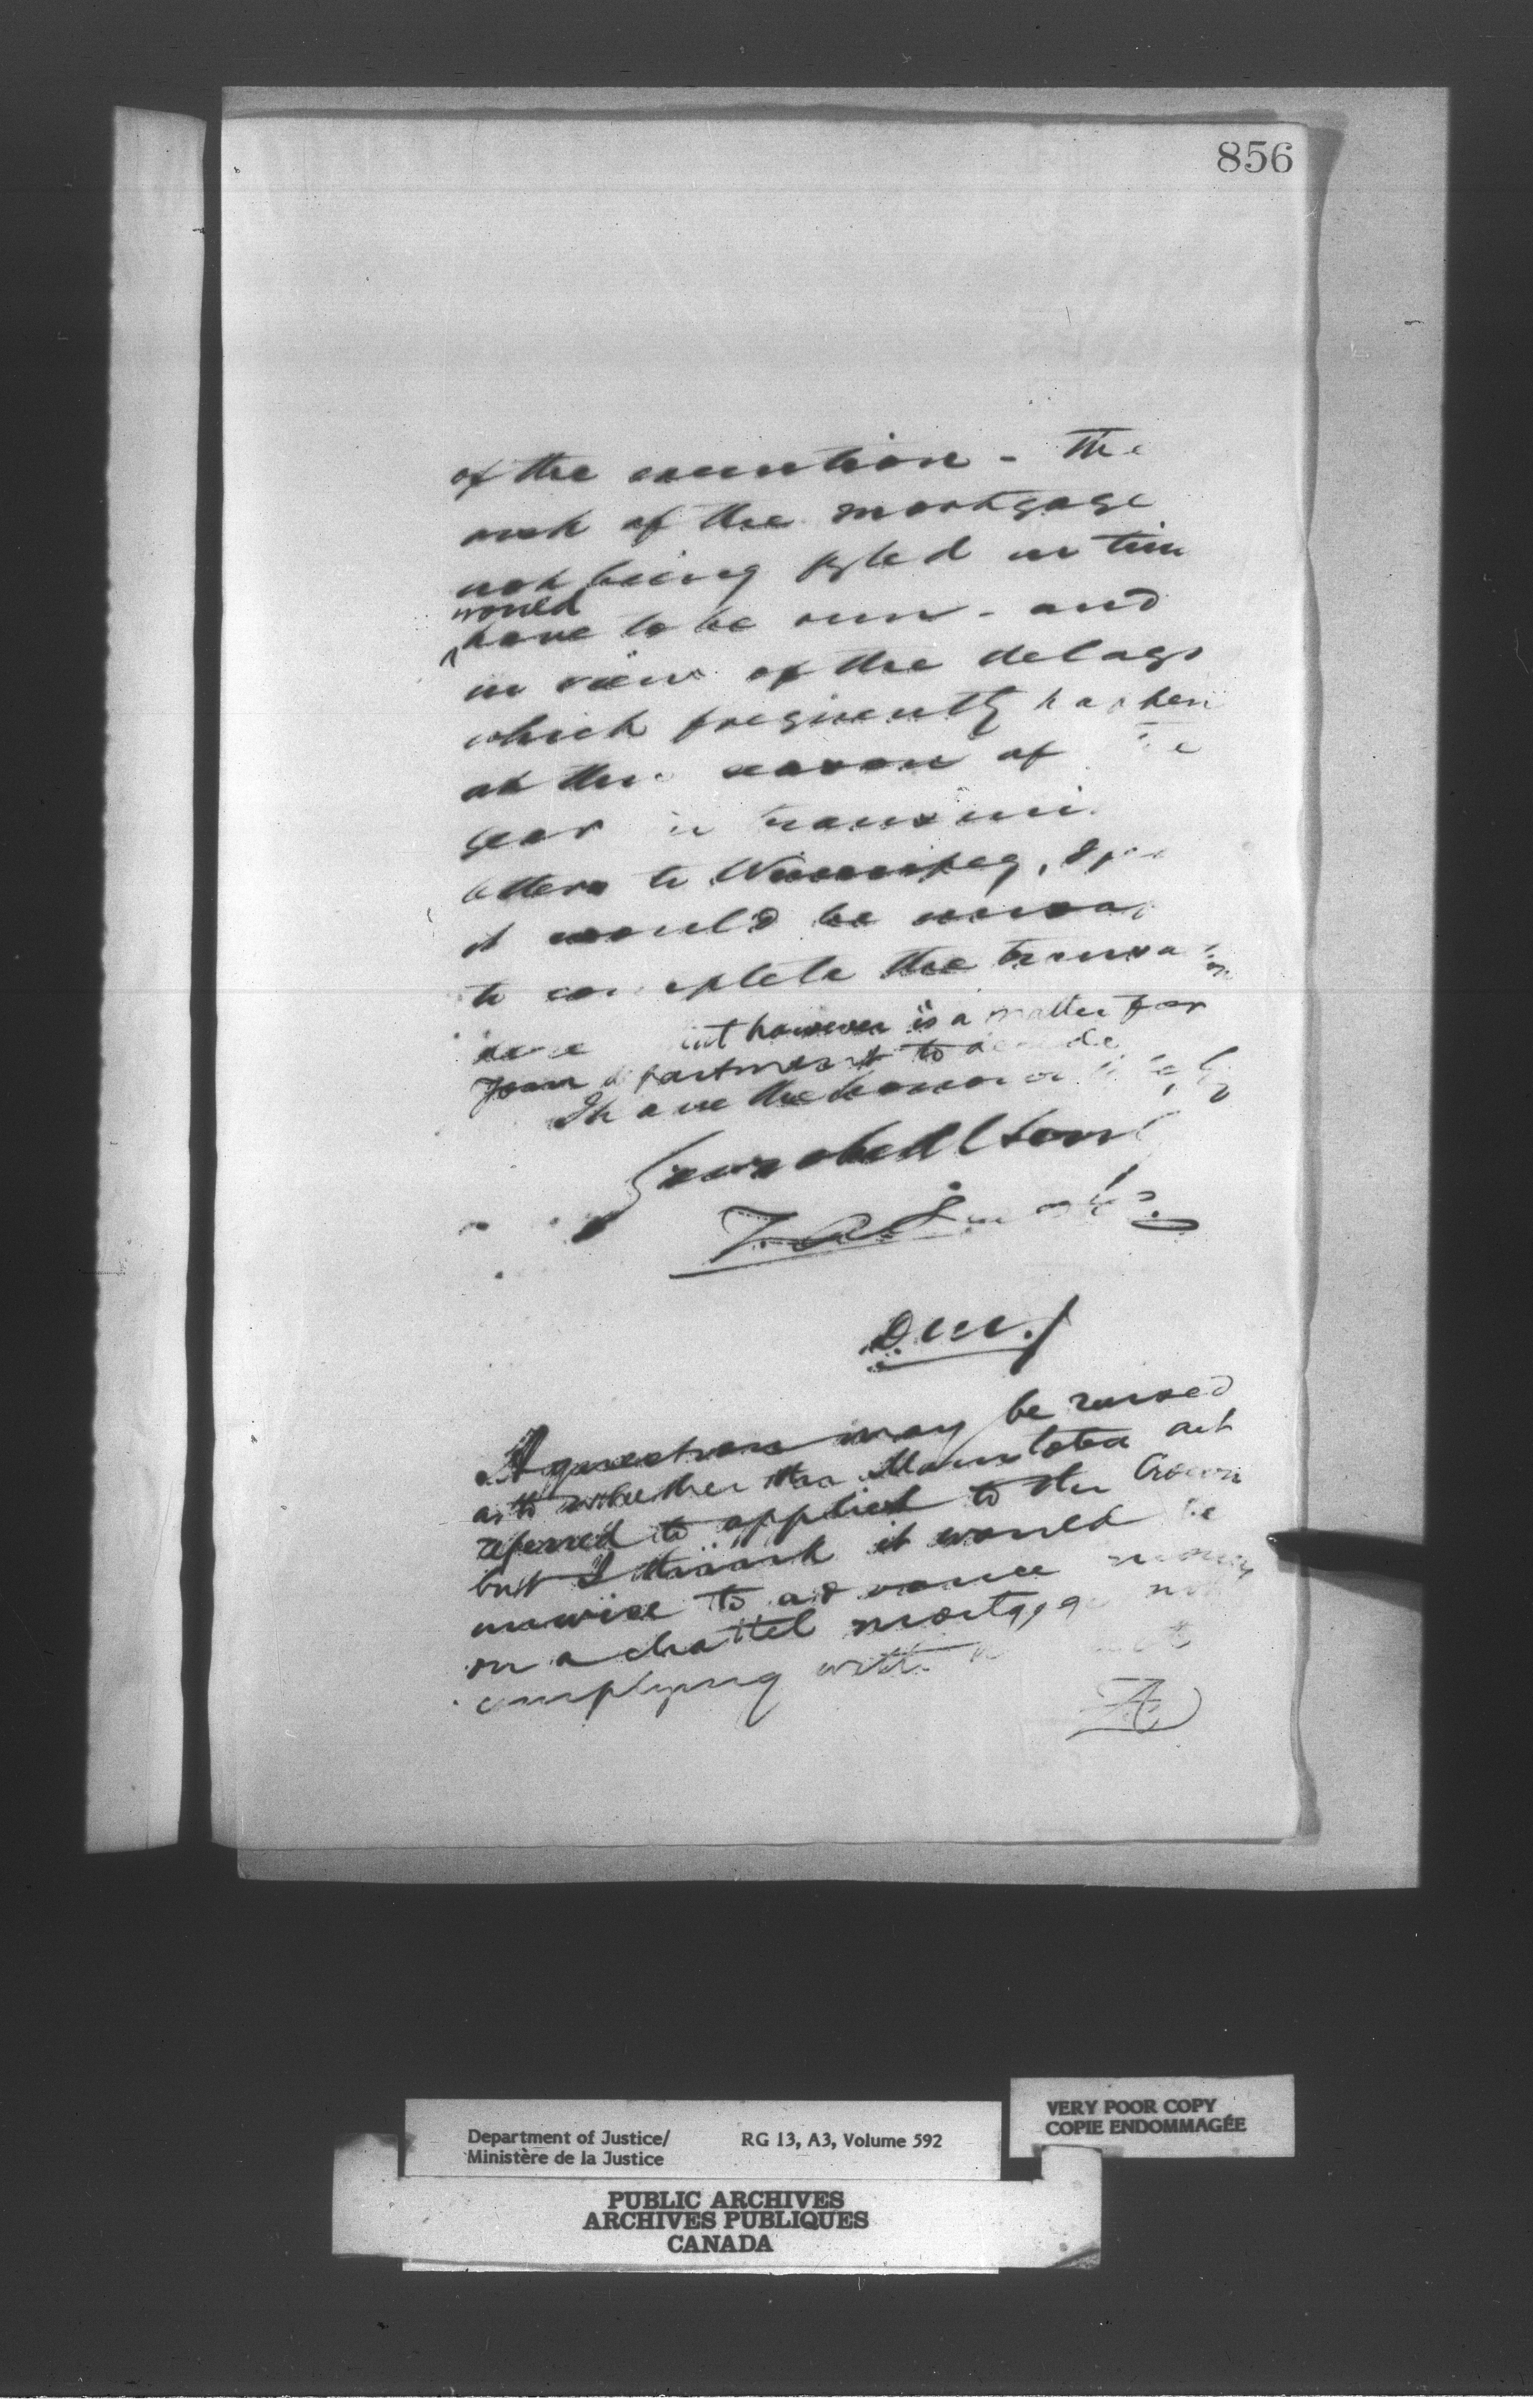 856
of the execution - The
risk of the mortgage
not being fyled in time
would
have to be run - and
in view of the delays
which frequently happen
at this season of the
year in
letters to Winnipeg, I
it would be
to complete the
that however is a matter for
your department to decide
I have the honor
Sir
Z A Lash
D.M.J
A question may be raised
as to whether the Manitoba act
referred to applied to the Crown
but I think it would be
unwise to advance money
on a chattel mortgage not
complying with
ZA
Department of Justice/ RG 13, A3, Volume 592
Ministère de la Justice
VERY POOR COPY
COPIE ENDOMMAGÉE
PUBLIC ARCHIVES
ARCHIVES PUBLIQUES
CANADA